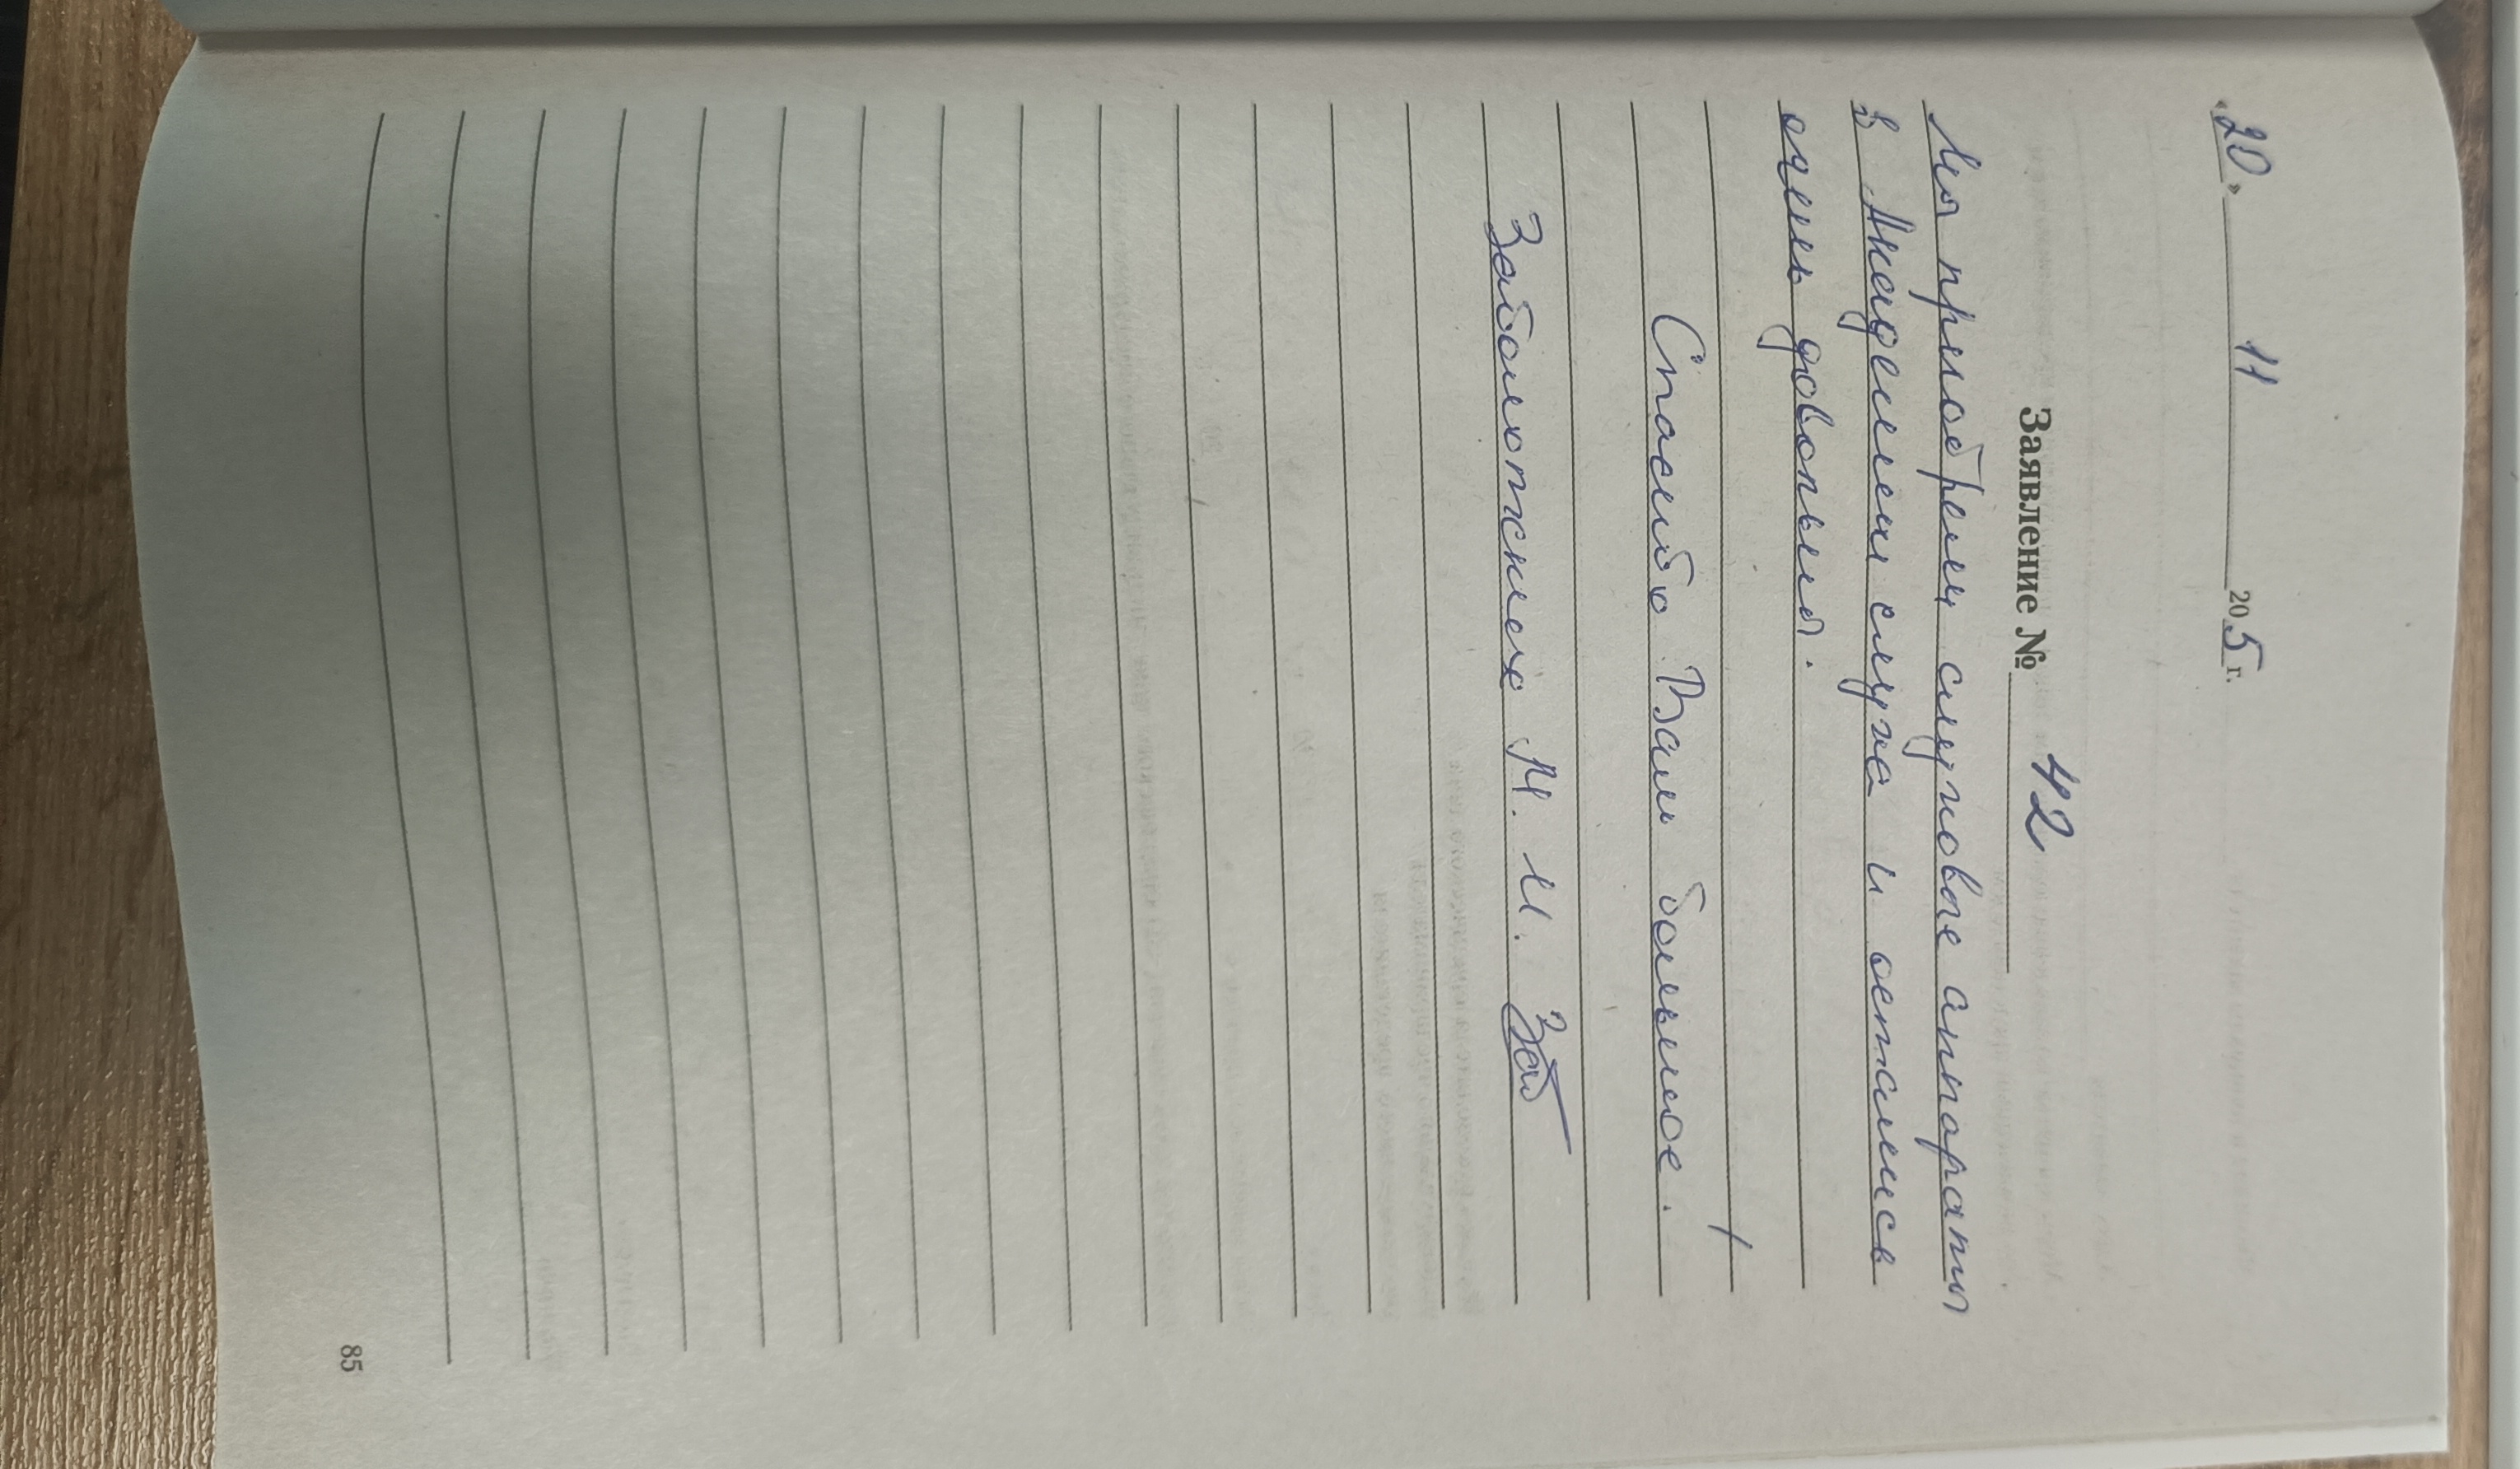 «20» 11 205 г.
Заявление № 42
Мы приобрели слуховые аппараты
в Академии слуха и остались
очень довольны.
Спасибо Вам большое.
Заболотские М. И. Заб
85